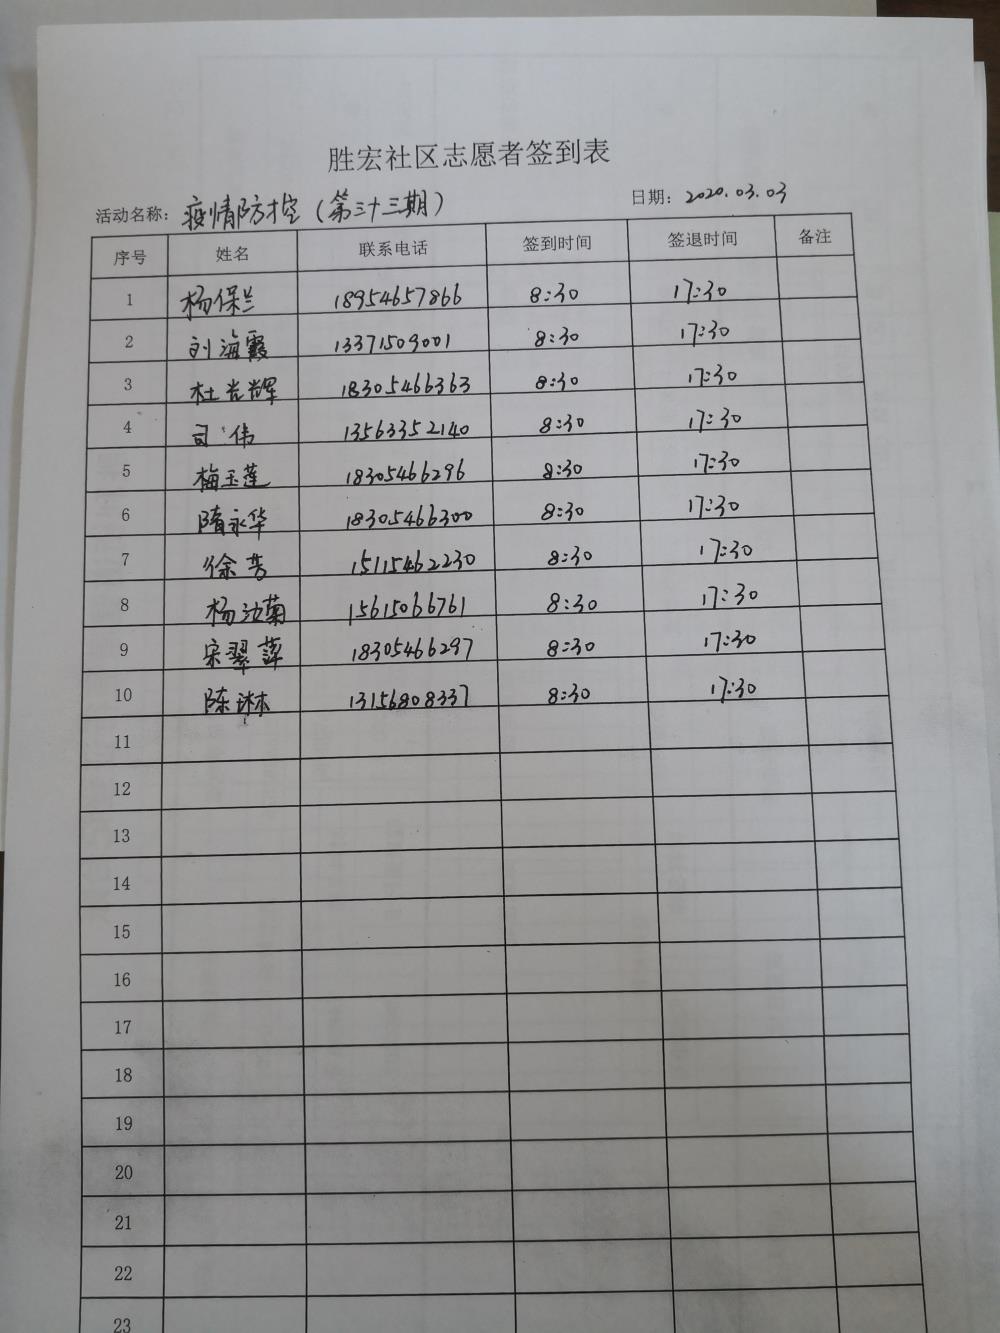 胜宏社区志愿者签到表
活动名称：疫情防控（第三十三期） 日期：2020.03.03
序号 姓名 联系电话 签到时间 签退时间 备注
1 杨保兰 18954657866 8:30 17:30
2 刘海霞 13371509001 8:30 17:30
3 杜光辉 18305466363 8:30 17:30
4 司伟 13563352140 8:30 17:30
5 梅玉莲 18305466296 8:30 17:30
6 隋永华 18305466300 8:30 17:30
7 徐芳 15115462230 8:30 17:30
8 杨 菊 15615066761 8:30 17:30
9 宋翠萍 18305466297 8:30 17:30
10 陈琳 13156808337 8:30 17:30
11
12
13
14
15
16
17
18
19
20
21
22
23